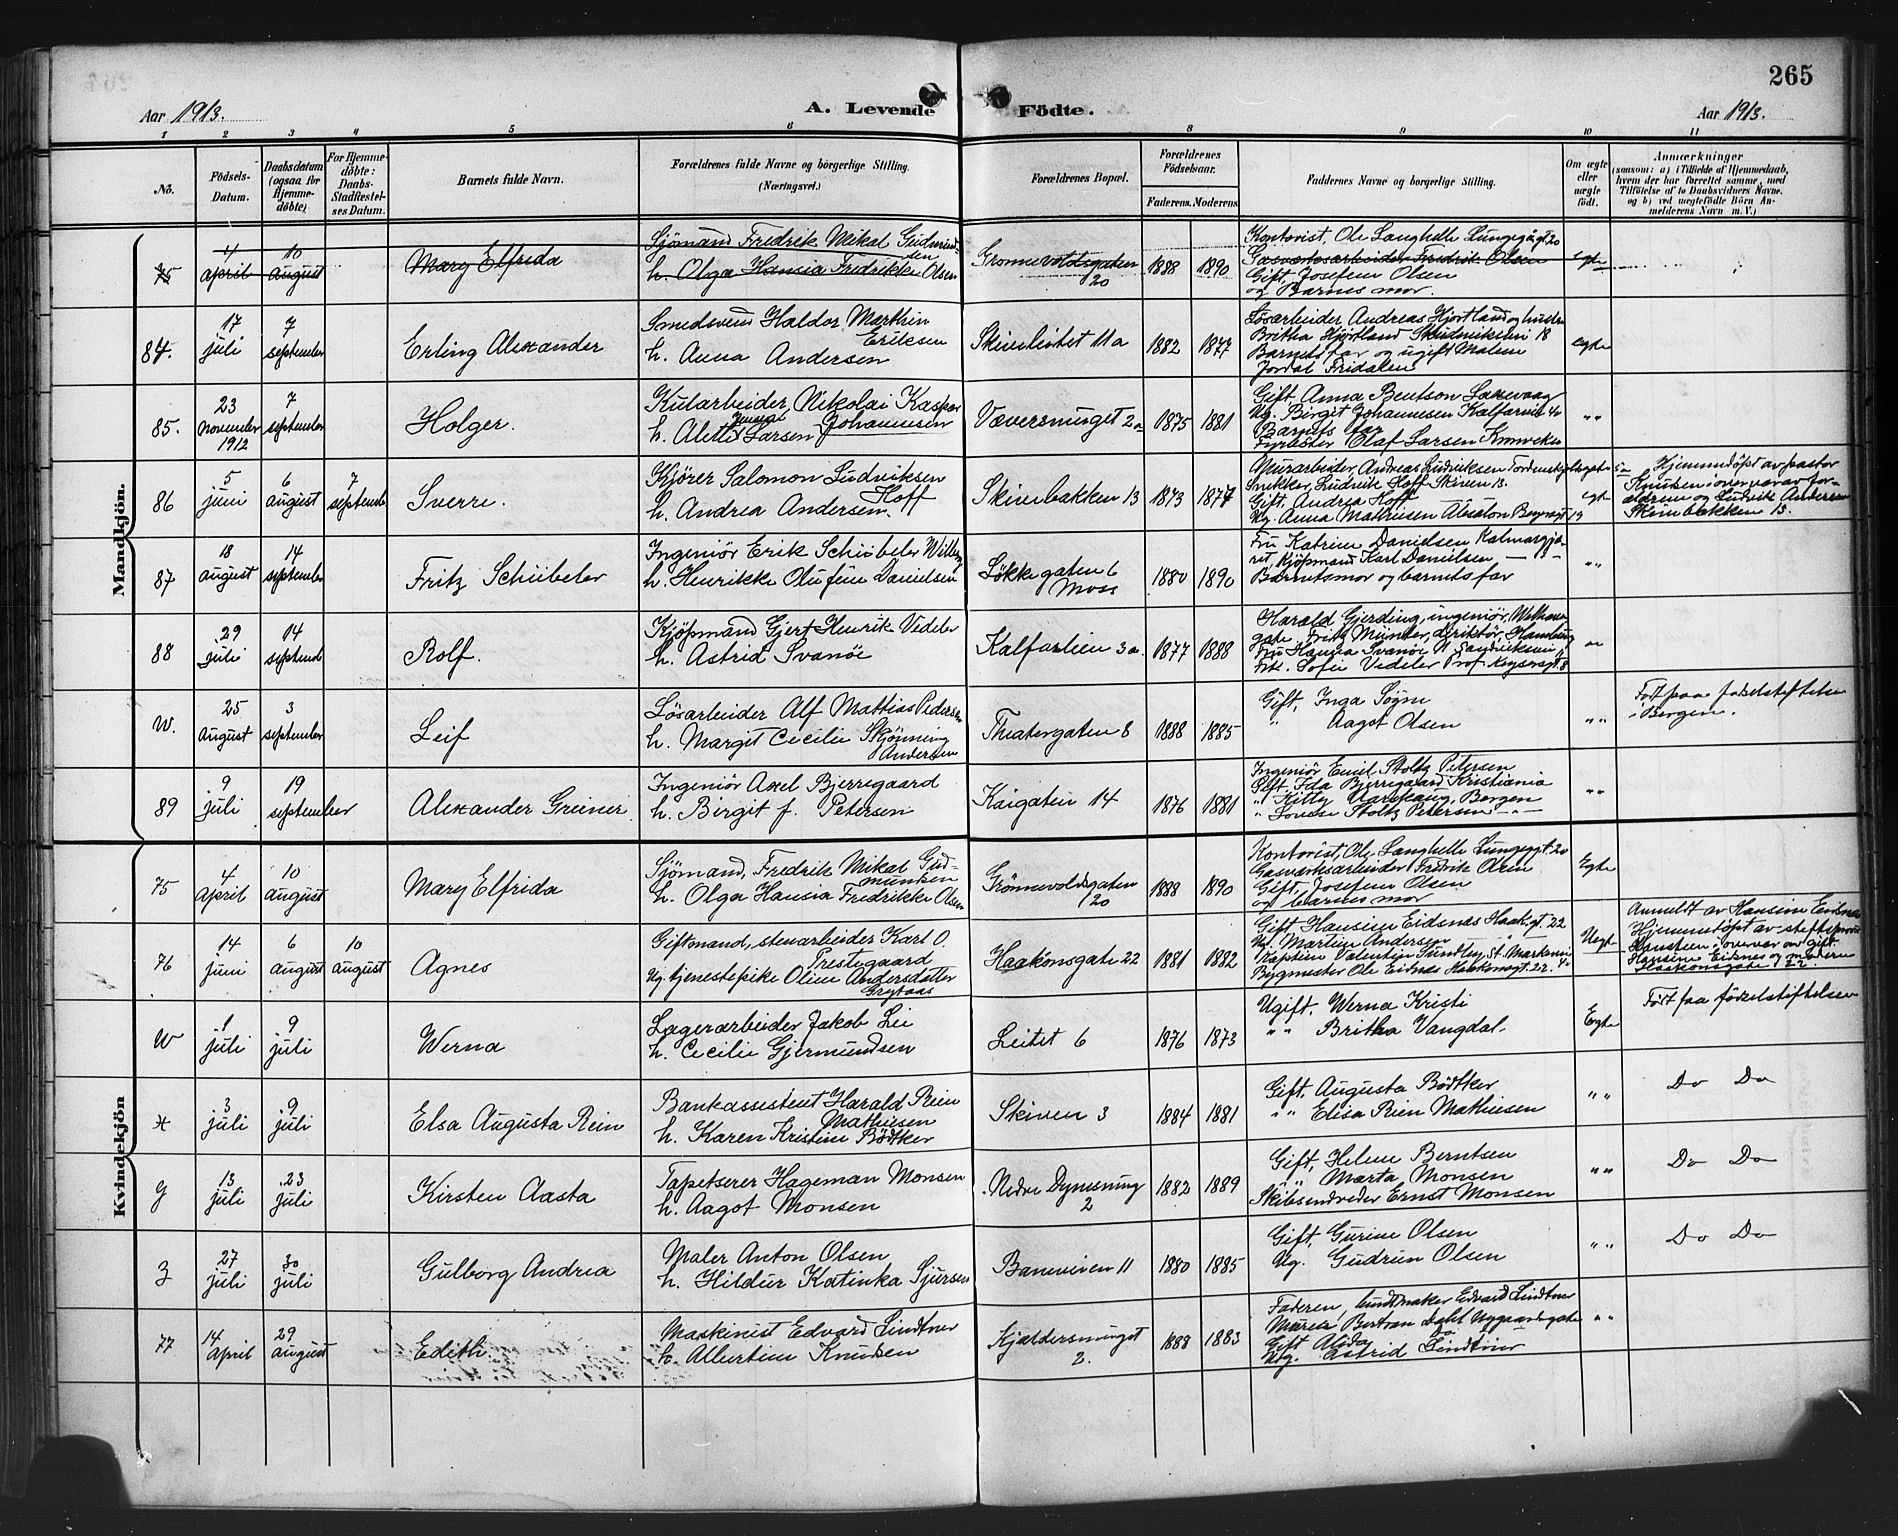 265
Aar 1913.
A. Levende Födte.
Aar 1913.
1 2 3 4 5 6 8 9 10 11
No.
Födsels-Datum.
Daabsdatum (ogsaa for Hjemme-döbte)
For Hjemme-döbte: Daabs-Stadfæstel-ses Datum.
Barnets fulde Navn.
Forældrenes fulde Navne og borgerlige Stilling. (Næringsvei.)
Forældrenes Bopæl.
Forældrenes Födselsaar.
Faderens. Moderens
Faddernes Navne og borgerlige Stilling.
Om ægte eller uægte födt.
Anmærkninger
(saasom: a) i Tilfælde af Hjemmedaab, hvem der har forrettet samme, med Tilföielse af to Daabsvidners Navne, og b) ved uægtefödte Börn An-melderens Navn m. V.)
Mandkjön.
75 4 april 10 august Mary Elfrida
Sjömand Fredrik Mikal Gudmund-sen
h. Olga Hansia Fredrikke Olsen
Grönnevoldsgaten 20 1888 1890
Kontorist, Ole Langhelle Lungegågt 20
Gasværksarbeider Fredrik Olsen
Gift, Josefine Olsen
og Barnets mor.
egte
84. 17 juli 7 september Erling Alexander
Smedsvend Haldor Marthin Eriksen
h. Anna Andersen
Skivebøtet 11a 1882 1877
Løsarbeider Andreas Hjortland og hustru
Britha Hjortland Skudeviken 18
Barnets far og ugift Malene
Jordal Fridalen
egte
85. 23 november 1912 7 september Holger.
Kularbeider, Nikolai Kaspar Johannesen
h. Alette Larsen
Væversmuget 2a 1875 1881
Gift Anna Bentson Laxevaag
Ug. Birgit Johannesen Kalfarveien 40
Barnets far
Fyrbøter Olaf Larsen
" "
86 5 juni 6 august 7 september Sverre.
Kjörer Salomon Ludviksen Hoff
h. Andrea Andersen
Skivebakken 13 1873 1877
Murarbeider, Andreas Ludviksen Tordenskjoldsgate 5a
Snekker, Ludvik Hoff Skiven 13.
Gift, Andrea Hoff
Ug. Anna Mathiesen Absalon Beyersgt 19
egte
Hjemmedöpt av pastor
Knudsen i overvær av for-
ældrene og Ludvik Andersen
Skivebakken 13.
87 18 august 14 september Fritz Schübeler
Ingeniör Erik Schübeler Wilberg
h. Henrikke Olufine Danielsen
Løkkegaten 6 Moss 1880 1890
Fru Katrine Danielsen Kalmargjæ-
ret, Kjöpmand Karl Danielsen — " —
Barnets mor og barnets far
" "
88 29 juli 14 septemb Rolf.
Kjöpmand Gjert Henrik Vedeler
h. Astrid Svanöe
Kalfarlien 3a. 1877 1888
Harald Gjerding, ingeniör, Welhavens
gate, Fritz Münster, direktör, Hamburg
Fru Hansia Svanöe
Frk. Sofie Vedeler Prof. Keysersgt. 8
W. 25 August 3 september Leif
Løsarbeider Alf Mattias Pedersen
h. Margit Cecilie Skjønning Andersen
Theatergaten 8 1888 1885
Gift, Inga Søgm
" Aagot Olsen
" "
Født paa fødselstiftelsen
i Bergen.
89 9 juli 19 september Alexander Greiner
Ingeniör Axel Bjerregaard
h. Birgit f. Petersen
Kaigaten 14 1876 1881
Ingeniör Emil Stoltz Petersen
Gift, Ida Bjerregaard Kristiania
" Kitty Aarskaug, Bergen
" Lovise Stoltz Petersen — " —
" "
Kvindekjön
75 4 April 10 august Mary Elfrida
Sjömand, Fredrik Mikal Gud-mundsen
h. Olga Hansia Fredrikke Olsen
Grönnevoldsgaten 20 1888 1890
Kontorist, Ole Langhelle Lungeggt 20
Gasværksarbeider Fredrik Olsen
Gift, Josefine Olsen
og barnets mor
Egte
76 14 juni 6 august 10 august Agnes
Giftmand, stenarbeider Karl O. Trestegaard
Ug. tjenestepike Oline Andersdatter Grytaas
Haakonsgate 22 1881 1882
Gift Hansine Eidsnæs Haak.gt. 22
Ug. Martin Andersen
Kaptein Valentin Sundby, St. Markevei 4a
Bygmester Ole Eidnæs Haakonsgt. 22.
Uegte
Anmeldt av Hansine Eidsnæs
Hjemmedöpt av stiftsprovst
Hanstien i overvær av gift
Hansine Eidsnes og moderen
Haakonsgate 22
W 1 juli 9 juli Werna
Lagerarbeider Jakob Lei
h. Cecilie Gjermundsen
Leitet 6 1876 1873
Ugift, Werna Kristi
" " Britha Vangdal.
Egte
Født paa fødselstiftelsen
X 3 juli 9 juli Elsa Augusta Rein
Bankassistent Harald Rein Mathiesen
h. Karen Kristine Bödtker
Skiven 3 1884 1881
Gift, Augusta Bödtker
" " Elisa Rein Mathiesen
" "
Do Do
Y 13 juli 23 juli Kirsten Aasta
Tapetserer Hageman Monsen
h. Aagot Monsen
Nedre Dynesmug 2 1882 1889
Gift, Helene Berntsen
" " Marta Monsen
Skibsindreder Ernst Monsen
" "
Do Do
Z 27 juli 30 juli Gulborg Andrea
Maler Anton Olsen
h. Hildur Katinka Sjursen
Baneveien 11 1880 1885
Gift, Gurine Olsen
Ug. Gudrun Olsen
" "
Do Do
77 14 April 29 august Edith
Maskinist Edvard Lindtner
h. Albertine Knudsen
Kjældersmuget 2. 1888 1883
Faderen, buntmaker Edvard Lindtner
Murer Bertran Dahl Nygaardsgaten
Gift Alida Do
Ug. Astrid Lindtner
" "